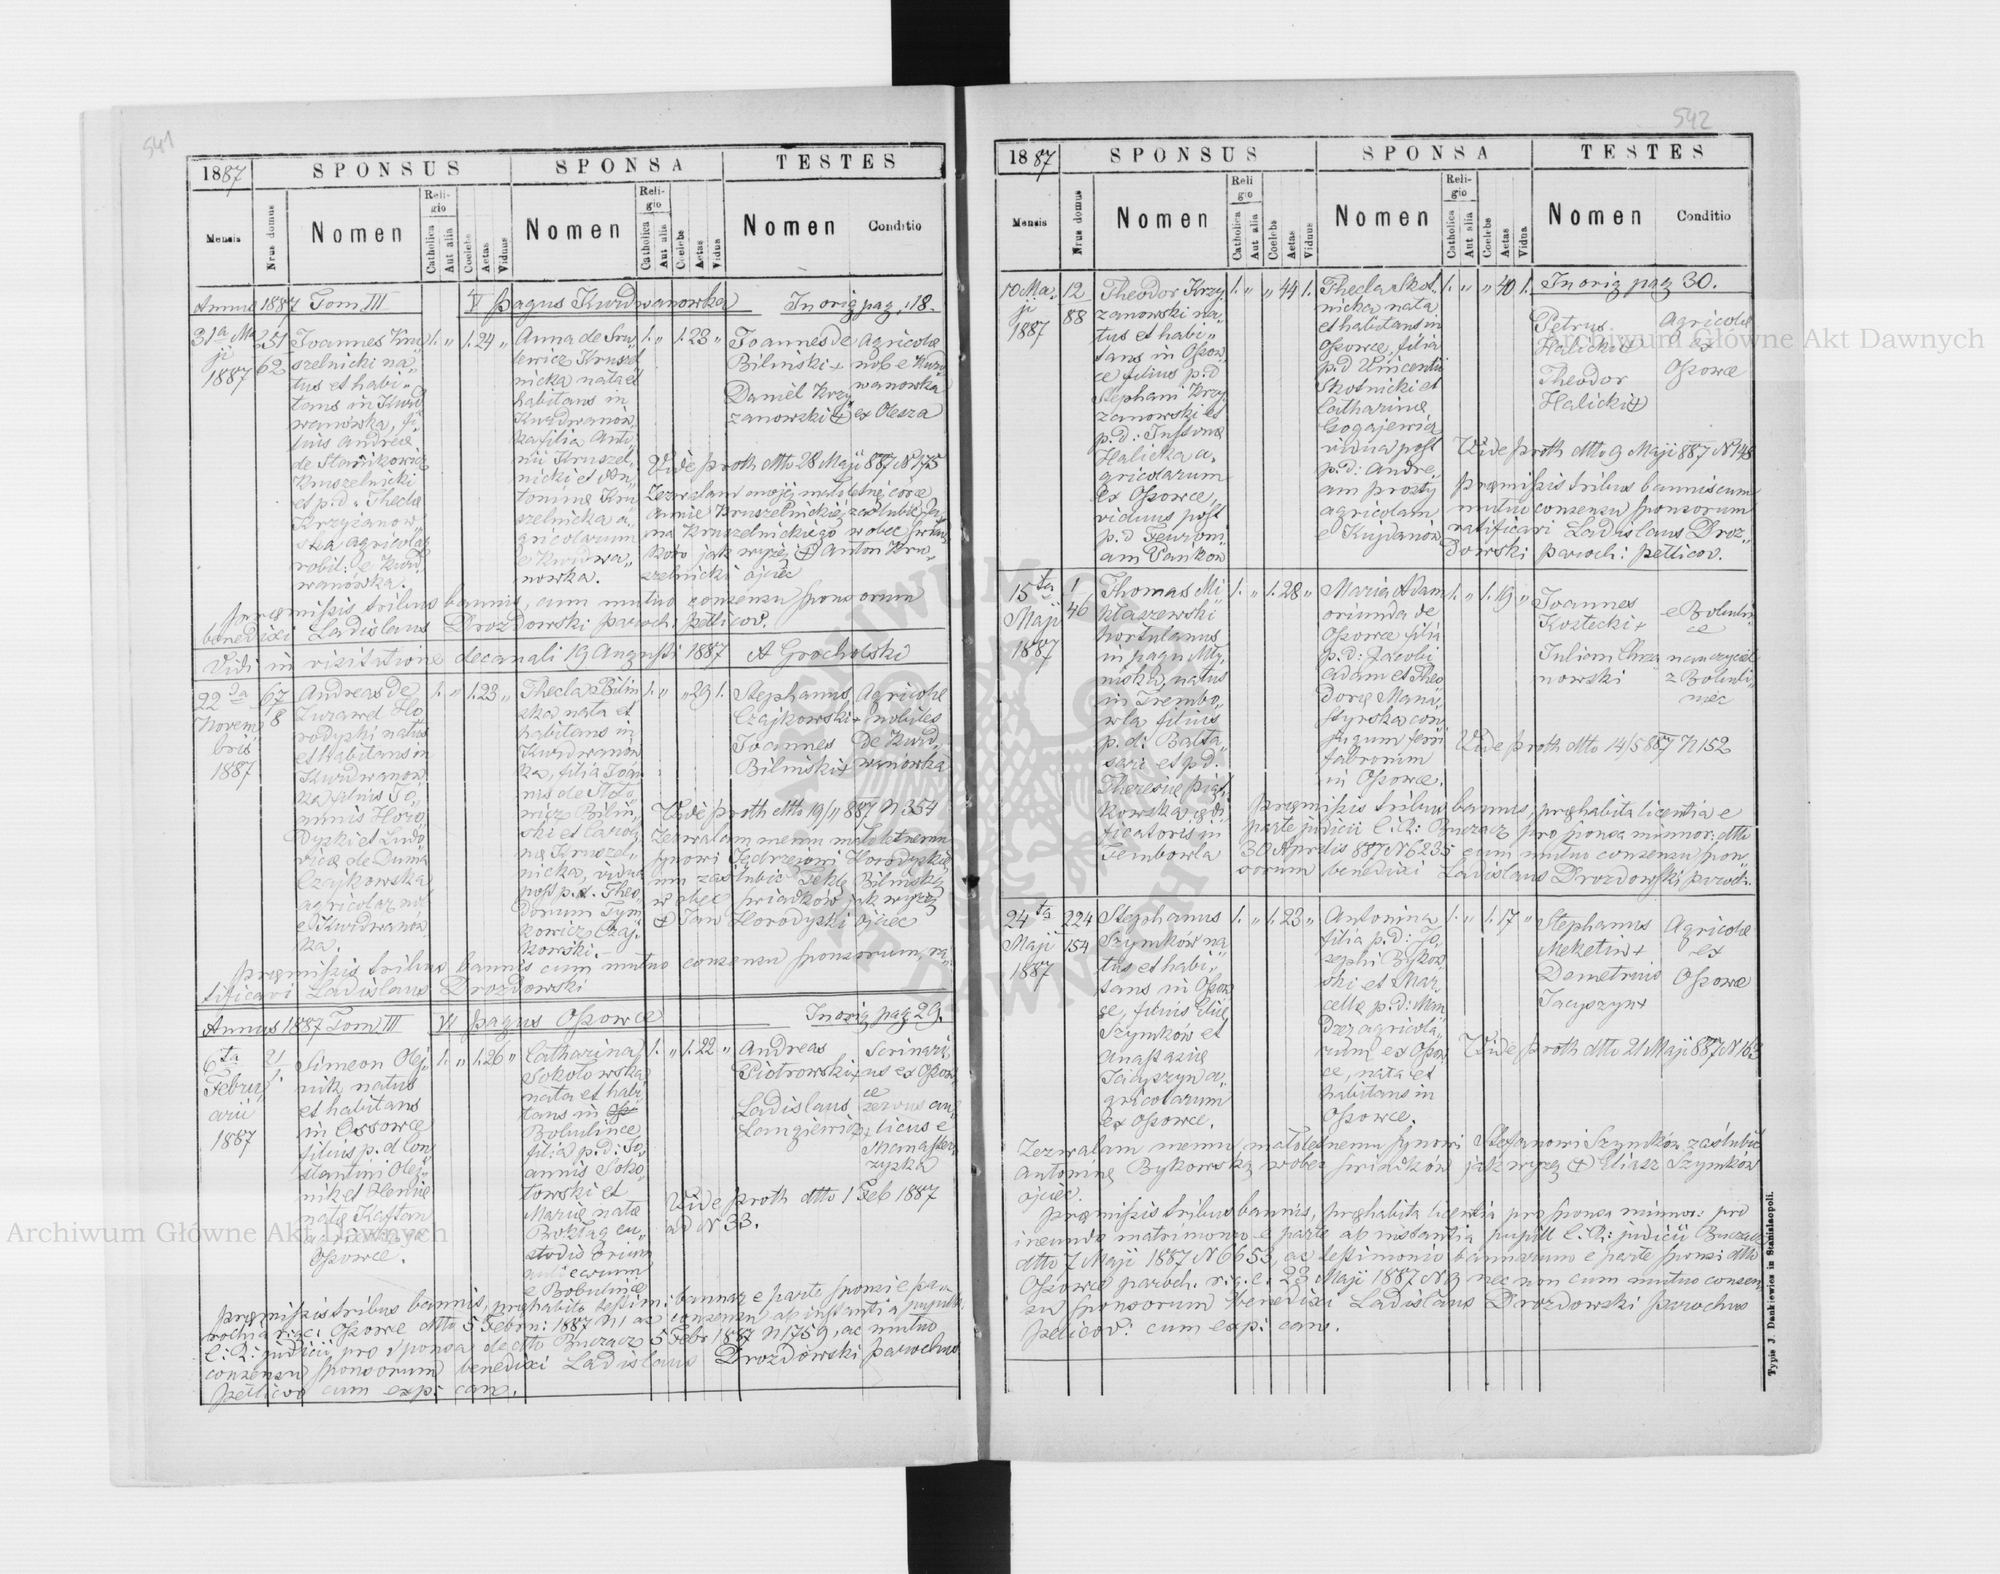 541
1887
SPONSUS
SPONSA
TESTES
Mensis
Nrus domus
Nomen
Religio
Catholica
Aut alia
Coelebs
Aetas
Viduus
Nomen
Religio
Catholica
Aut alia
Coelebs
Aetas
Vidua
Nomen
Conditio
Annus 1887 Tom III V pagus Kurdwanowka In orig pag. 18.
31a Ma
ji
1887
251
62
Joannes Kru
szelnicki na„
tus et habi„
tans in Kurd
wanowka, fi„
lius Andreae
de Stanikowicz
Kruszelnicki
et p.d. Thecla
Krzyżanow„
ska agricolar
nobil: e Kurd
wanowka.
1. „ 1. 24 „
Anna de
Kruszel
nicka nata et
habitans in
Kurdwanow
ka filia Anto
nii Kruszel„
nicki et An„
toninae Kru
szelnicka a„
gricolarum
e Kurdwa„
nowka.
1. „ 1. 23 „
Joannes de
Biliński +
Daniel Krzy
zanowski +
Agricolae
nob e Kurd
wanowka
ex Olesza
Vide proth dtto 28 Maji 887 N 175
Zezwalam mojej małoletniej córce
Annie Kruszelnickiej zaślubić Ja
na Kruszelnickiego w obec świad
ków jak wyżej + Anton Kru„
szelnicki ojciec
Praemissis tribus bannis, cum mutuo consensu sponsorum
benedixi Ladislaus Drozdowski paroch: petlicov.
Vidi in visitatione decanali 19 Augusti 1887 A Grocholski
22da
Novem
bris
1887
67
8
Andreas de
Zurawel Ho
rodyski natus
et habitans in
Kurdwanow
ka filius Jo„
annis Horo
dyski et Ludo
vicae de Dunia
Czajkowska
agricolar no
e Kurdwanow
ka.
1. „ 1. 23 „
Thecla Bilin
ska nata et
habitans in
Kurdwanow
ka, filia Joan
nis de
Biliń„
ski et Caroli
nae Kruszel„
nicka, vidua
post p.d. Theo
dorum Tym
kowicz Czaj„
kowski.
1. „ „ 29 1.
Stephanus
Czajkowski +
Joannes
Biliński +
Agricolae
nobiles
de Kurd„
wanowka
Vide proth dtto 19/11 887 N 354
Zezwalam memu małoletniemu
synowi Jędrzejowi Horodyskie
mu zaślubić Teklę Bilińską
w obec świadków jak wyżej
+ Jan Horodyski ojciec
Praemissis tribus bannis cum mutuo consensu sponsorum, ra„
tificavi Ladislaus Drozdowski
Annus 1887 Tom III VI pagus Ossowce In orig pag 29.
6ta
Febru
arii
1887
21
1.
Simeon Olej„
nik natus
et habitans
in Ossowce
filius p.d Con
stantini Olej„
nik et Heniae
natae Kasztan
agricolar ex
Ossowce.
1. „ 1. 26 „
Catharina
Sokołowska
nata et habi
tans in
Bobulince
filia p.d: Jo„
annis Soko„
łowski et
Mariae natae
cu„
stodis
e Bobulince
1. „ 1. 22 „
Andreas
Piotrowski +
Ladislaus
Langiewicz +
Scrinari„
us ex Ossow„
ce
servus au„
licus e
Monaster„
zyska
Vide proth dtto 1 Feb 1887
ad N 33.
Praemissis tribus bannis, praehabito testim: bannar e parte sponsi e pa„
rochia r.g.c: Ossowce dtto 5 Febru: 1887 N 1 ac consensu ab instantia pupill.
C:R: judicii pro sponsa de dtto Buczacz 5 Febr 1887 N 1759, ac mutuo
consensu sponsorum benedixi Ladislaus Drozdowski parochus
petlicov cum exp: can.
542
1887
SPONSUS
SPONSA
TESTES
Mensis
Nrus domus
Nomen
Religio
Catholica
Aut alia
Coelebs
Aetas
Viduus
Nomen
Religio
Catholica
Aut alia
Coelebs
Aetas
Vidua
Nomen
Conditio
In orig pag 30.
10 Ma„
ji
1887
12
88
Theodor Krzy„
zanowski na„
tus et habi„
tans in Ossow„
ce filius p.d
Stephani Krzy
zanowski et
p.d: Justinae
Halicka a„
gricolarum
ex Ossowce,
viduus post
p.d Fewroni„
am Pankow
1. „ „ 44 1.
Thecla Skot„
nicka nata
et habitans in
Ossowce, filia
p.d Vincentii
Skotnicki et
Catharinae
Gogajewicz
vidua post
p.d: Andre„
am Prosty
agricolam
e Kujdanow
1. „ „ 40 1.
Petrus
Halicki +
Theodor
Halicki +
Agricolae
ex
Ossowce
Vide proth dtto 9 Maji 887 N 148
Praemissis tribus bannis cum
mutuo consensu sponsorum
ratificavi Ladislaus Droz„
dowski paroch: petlicov.
15ta
Maji
1887
1
46
Thomas Mi
kłaszewski
hortulanus
in pagu Mły„
niska, natus
in Trembo„
wla filius
p.d: Balta„
sari et p.d:
Theresiae Piąt„
kowska, aedi
ficatoris in
Tembowla
1. „ 1. 28 „
Maria Adam
oriunda de
Ossowce filia
p.d: Jacobi
Adam et Theo
dorae Mana„
styrska con„
jugum ferri
fabrorum
in Ossowce.
1. „ 1. 19 „
Joannes
Kostecki +
Julian Chrza
nowski
e Bobulin„
ce
nauczyciel
z Bobuli„
niec
Vide proth dtto 14/5 887 N 152
Praemissis tribus bannis, praehabita licentia e
parte judicii C:R: Buczacz pro sponsa minnor: dtto
30 Aprilis 887 N 6235 cum mutuo consensu spon„
sorum benedixi Ladislaus Drozdowski paroch.
24ta
Maji
1887
224
154
Stephanus
Szymków na„
tus et habi„
tans in Ossow
ce, filius Eliae
Szymków et
Anastasiae
Jacyszyn a„
gricolarum
ex Ossowce.
1. „ 1. 23 „
Antonina
filia p.d: Jo„
sephi Bykow„
ski et Mar„
cellae p.d: Man
dzer agricola„
rum ex Ossow
ce, nata et
habitans in
Ossowce.
1. „ 1. 17 „
Stephanus
Meketin +
Demetrius
Jacyszyn +
Agricolae
ex
Ossowce
Vide proth dtto 21 Maji 887 N 163
Zezwalam memu małoletniemu synowi Stefanowi Szymków zaślubić
Antoninę Bykowską wobec świadków jak wyżej + Eliasz Szymków
ojciec.
Praemissis tribus bannis, praehabita licentia pro sponsa minnor: pro
ineundo matrimonio e parte ab instantia pupill C.R: judicii Buczacz
dtto 7 Maji 1887 N 6653, ac testimonio bannarum e parte sponsi dtto
Ossowce paroch. r.g.c. 23 Maji 1887 N 9 nec non cum mutuo consen„
su sponsorum benedixi Ladislaus Drozdowski parochus
petlicov: cum exp: can.
Typis J. Dankiewicz in Stanislaopoli.
Archiwum Główne Akt Dawnych
Archiwum Główne Akt Dawnych
ARCHIWUM GŁÓWNE AKT DAWNYCH